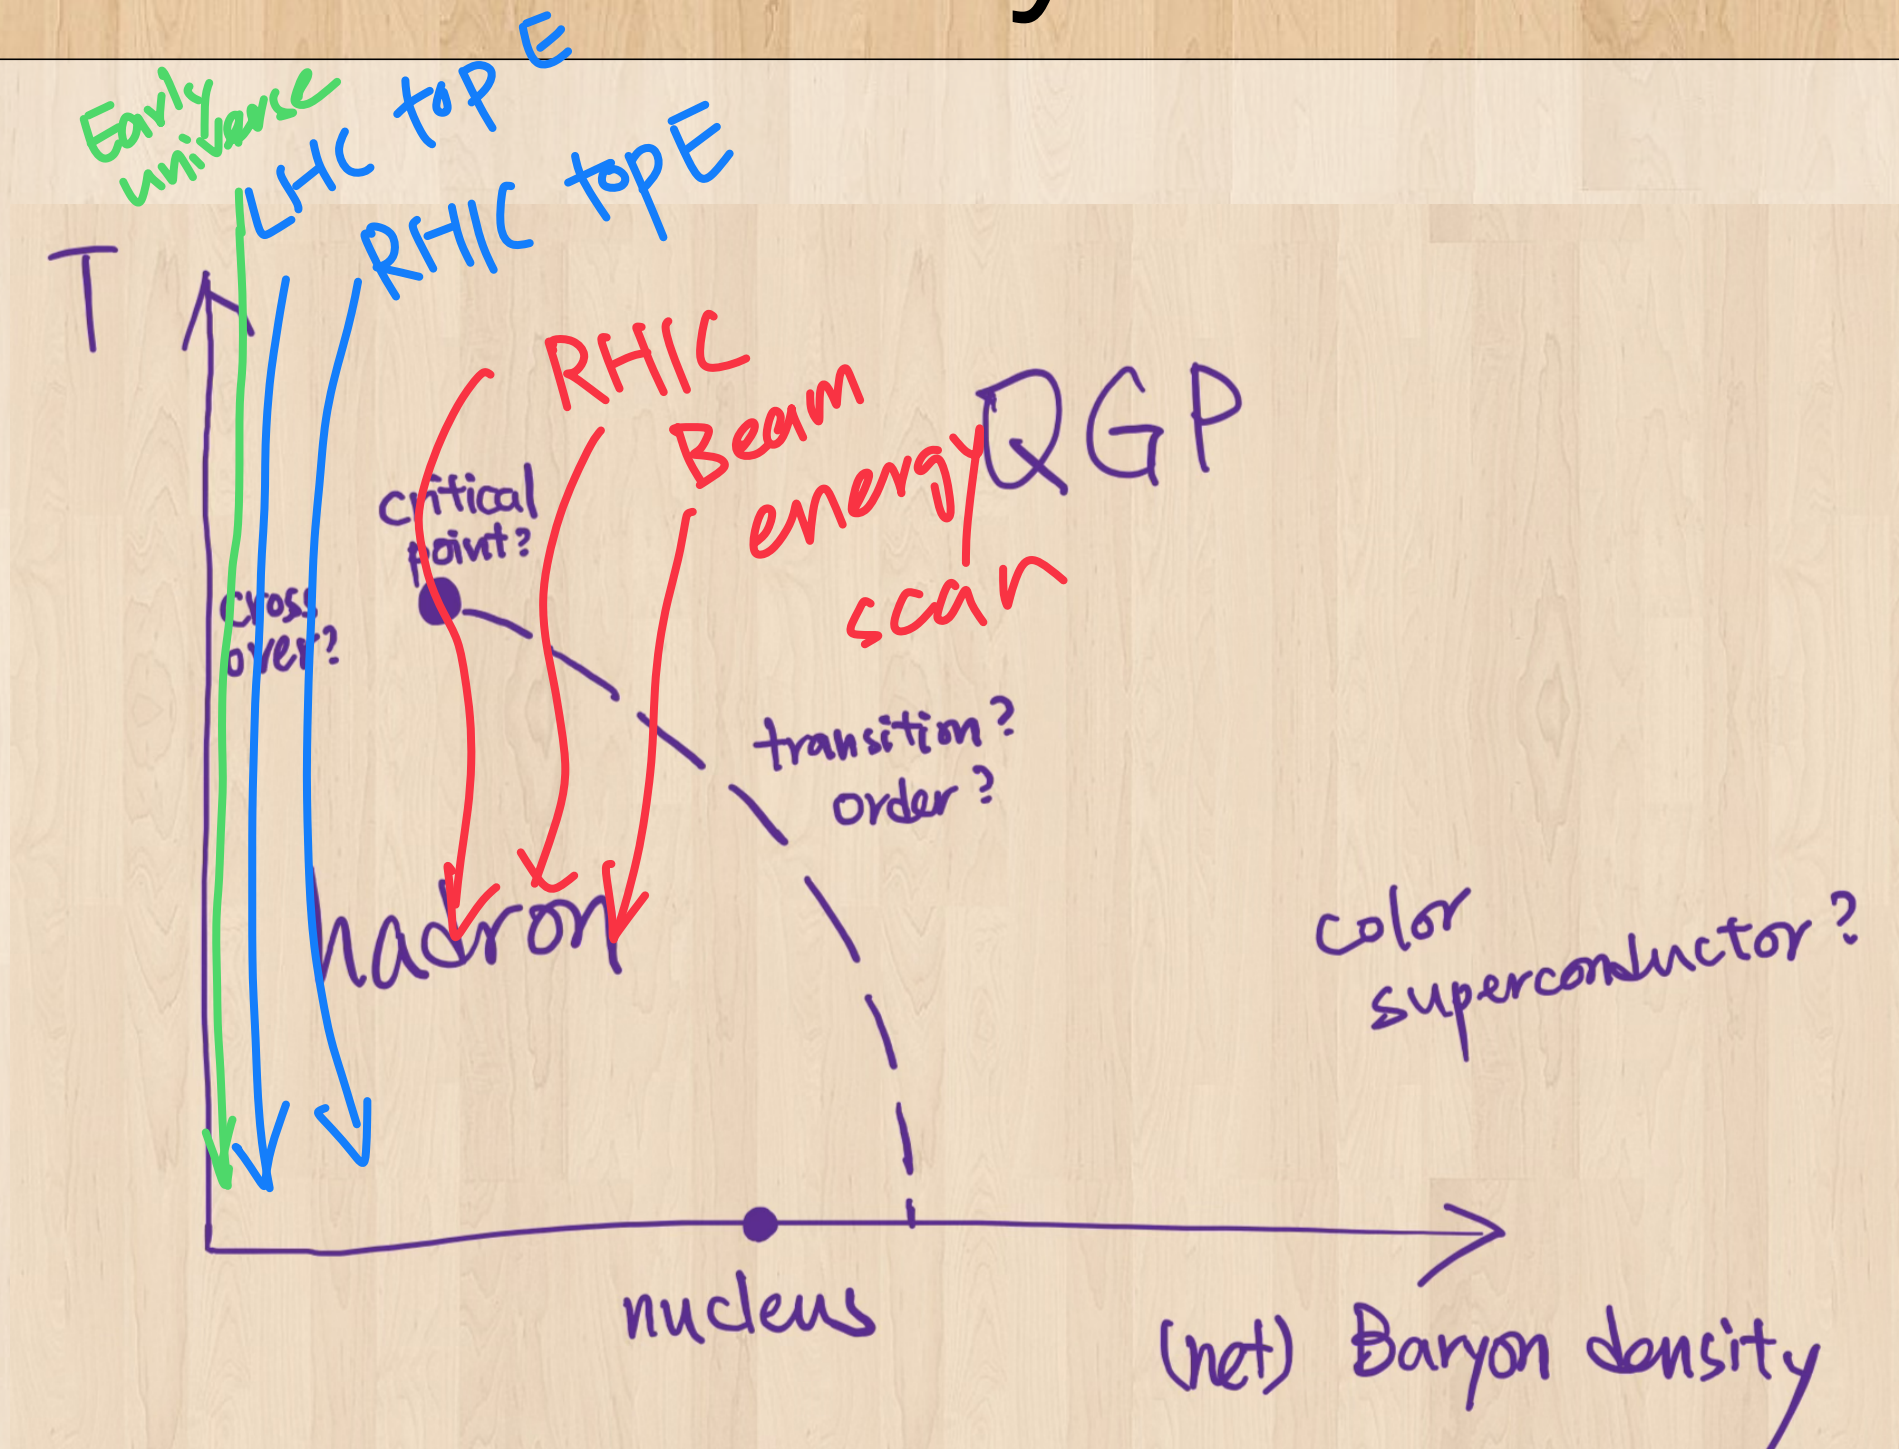 y
Early
universe
LHC top E
RHIC top E
T
RHIC
Beam
energy
scan
QGP
critical
point?
cross
over?
transition?
order?
hadron
color
superconductor?
nucleus
(net) Baryon density